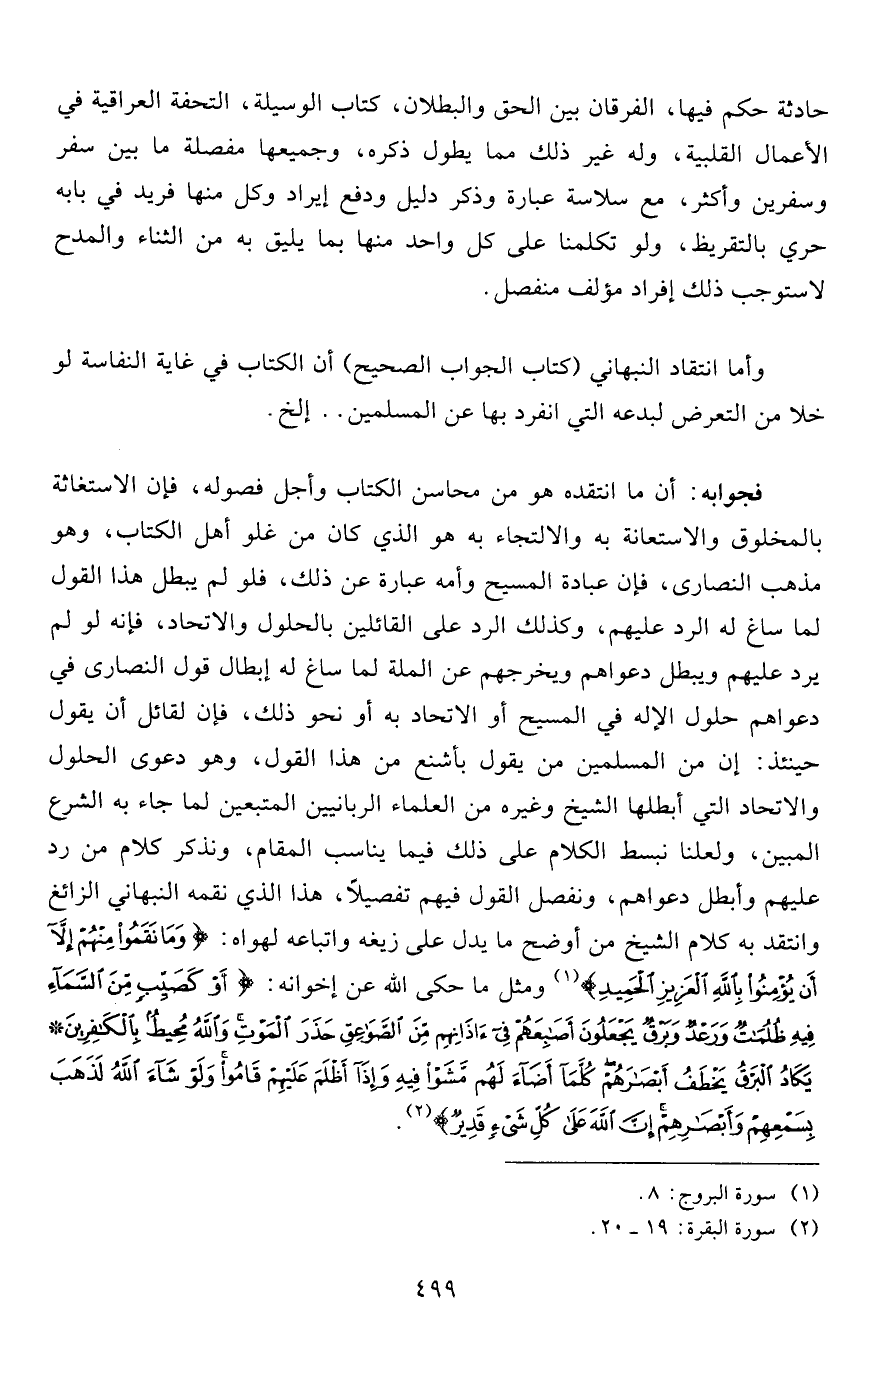 حادثة حكم فيها، الفرقان بين الحق والبطلان، كتاب الوسيلة، التحفة العراقية في
الأعمال القلبية، وله غير ذلك مما يطول ذكره، وجميعها مفصلة ما بين سفر
وسفرين وأكثر، مع سلاسة عبارة وذكر دليل ودفع إيراد وكل منها فريد في بابه
حري بالتقريظ، ولو تكلمنا على كل واحد منها بما يليق به من الثناء والمدح
لاستوجب ذلك إفراد مؤلف منفصل.
وأما انتقاد النبهاني (كتاب الجواب الصحيح) أن الكتاب في غاية النفاسة لو
خلا من التعرض لبدعه التي انفرد بها عن المسلمين.. إلخ.
فجوابه: أن ما انتقده هو من محاسن الكتاب وأجل فصوله، فإن الاستغاثة
بالمخلوق والاستعانة به والالتجاء به هو الذي كان من غلو أهل الكتاب، وهو
مذهب النصارى، فإن عبادة المسيح وأمه عبارة عن ذلك، فلو لم يبطل هذا القول
لما ساغ له الرد عليهم، وكذلك الرد على القائلين بالحلول والاتحاد، فإنه لو لم
يرد عليهم ويبطل دعواهم ويخرجهم عن الملة لما ساغ له إبطال قول النصارى في
دعواهم حلول الإله في المسيح أو الاتحاد به أو نحو ذلك، فإن لقائل أن يقول
حينئذ: إن من المسلمين من يقول بأشنع من هذا القول، وهو دعوى الحلول
والاتحاد التي أبطلها الشيخ وغيره من العلماء الربانيين المتبعين لما جاء به الشرع
المبين، ولعلنا نبسط الكلام على ذلك فيما يناسب المقام، ونذكر كلام من رد
عليهم وأبطل دعواهم، ونفصل القول فيهم تفصيلاً، هذا الذي نقمه النبهاني الزائغ
وانتقد به كلام الشيخ من أوضح ما يدل على زيغه واتباعه لهواه: ﴿وَمَا نَقَمُوا۟ مِنْهُمْ إِلَّآ
أَن يُؤْمِنُوا۟ بِٱللَّهِ ٱلْعَزِيزِ ٱلْحَمِيدِ﴾(١) ومثل ما حكى الله عن إخوانه: ﴿أَوْ كَصَيِّبٍ مِّنَ ٱلسَّمَآءِ
فِيهِ ظُلُمَٰتٌ وَرَعْدٌ وَبَرْقٌ يَجْعَلُونَ أَصَٰبِعَهُمْ فِىٓ ءَاذَانِهِم مِّنَ ٱلصَّوَٰعِقِ حَذَرَ ٱلْمَوْتِ ۚ وَٱللَّهُ مُحِيطٌۢ بِٱلْكَٰفِرِينَ *
يَكَادُ ٱلْبَرْقُ يَخْطَفُ أَبْصَٰرَهُمْ ۖ كُلَّمَآ أَضَآءَ لَهُم مَّشَوْا۟ فِيهِ وَإِذَآ أَظْلَمَ عَلَيْهِمْ قَامُوا۟ ۚ وَلَوْ شَآءَ ٱللَّهُ لَذَهَبَ
بِسَمْعِهِمْ وَأَبْصَٰرِهِمْ ۚ إِنَّ ٱللَّهَ عَلَىٰ كُلِّ شَىْءٍ قَدِيرٌ﴾(٢).
(١) سورة البروج: ٨.
(٢) سورة البقرة: ١٩ ـ ٢٠.
٤٩٩